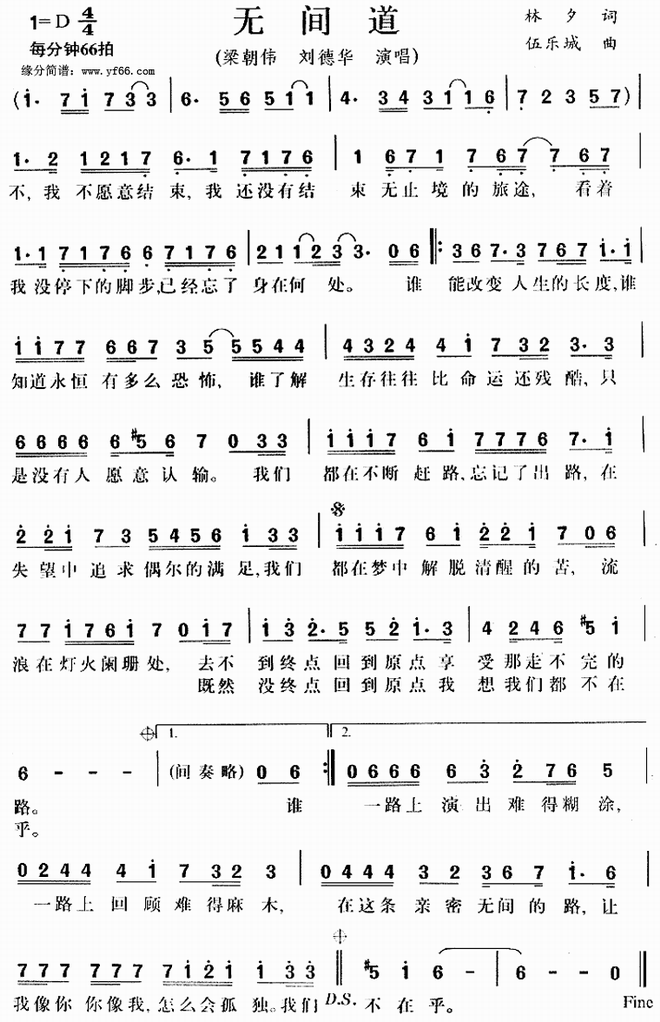 无间道
1=D 4/4
每分钟66拍
缘分简谱:www.yf66.com
(梁朝伟 刘德华 演唱)
林夕 词
伍乐城 曲
(1· 7 1 7 3 3 | 6· 5 6 5 1 1 | 4· 3 4 3 1 1 6 | 7 2 3 5 7) |
1· 2 1 2 1 7 6· 1 7 1 7 6 | 1 6 7 1 7 6 7 7 6 7 |
不,我 不愿意结 束,我 还没有结 束 无止 境的 旅途, 看着
1·1 7 1 7 6 6 7 1 7 6 | 2 1 1 2 3 3· 0 6 |: 3 6 7·3 7 6 7 1·1 |
我 没停下的脚步,已经忘了 身在何 处。 谁 能改变 人生的长度,谁
1 1 7 7 6 6 7 3 5 5 5 4 4 | 4 3 2 4 4 1 7 3 2 3·3 |
知道永恒 有多么 恐怖, 谁了解 生存往往 比命运还残酷,只
6 6 6 6 6 #5 6 7 0 3 3 | 1 1 1 7 6 1 7 7 7 6 7·1 |
是没有人 愿意认输。 我们 都在不断 赶路,忘记了出路,在
2 2 1 7 3 5 4 5 6 1 3 3 | 1 1 1 7 6 1 2 2 1 7 0 6 |
失望中 追求偶尔的满足,我们 都在梦中 解脱清醒的 苦, 流
7 7 1 7 6 1 7 0 1 7 | 1 3 2·5 5 2 1·3 | 4 2 4 6 #5 1 |
浪在灯火阑珊处, 去不 到终点 回到原点 享 受那走不完的
既然 没终点 回到原点 我 想我们都不在
1. 2.
6 - - - | (间奏略) 0 6 :| 0 6 6 6 6 3 2 7 6 5 |
路。 谁 一路上 演出难得糊涂,
乎。
0 2 4 4 4 1 7 3 2 3 | 0 4 4 4 3 2 3 6 7 1·6 |
一路上 回顾难得麻木, 在这条 亲密无间的路,让
7 7 7 7 7 7 7 1 2 1 1 3 3 || #5 1 6 - | 6 - - 0 ||
我像你 你像我,怎么会孤 独。我们 D.S. 不在乎。 Fine